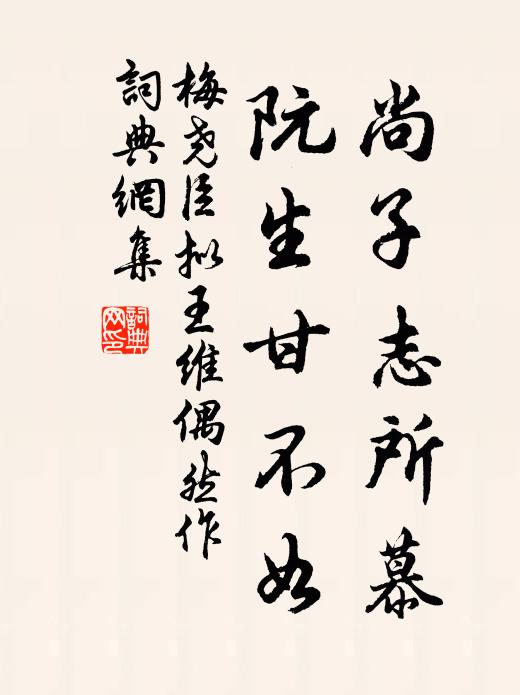 尚子志所慕
阮生甘不如
梅尧臣拟王维偶然作
詞典網集
詞典網印